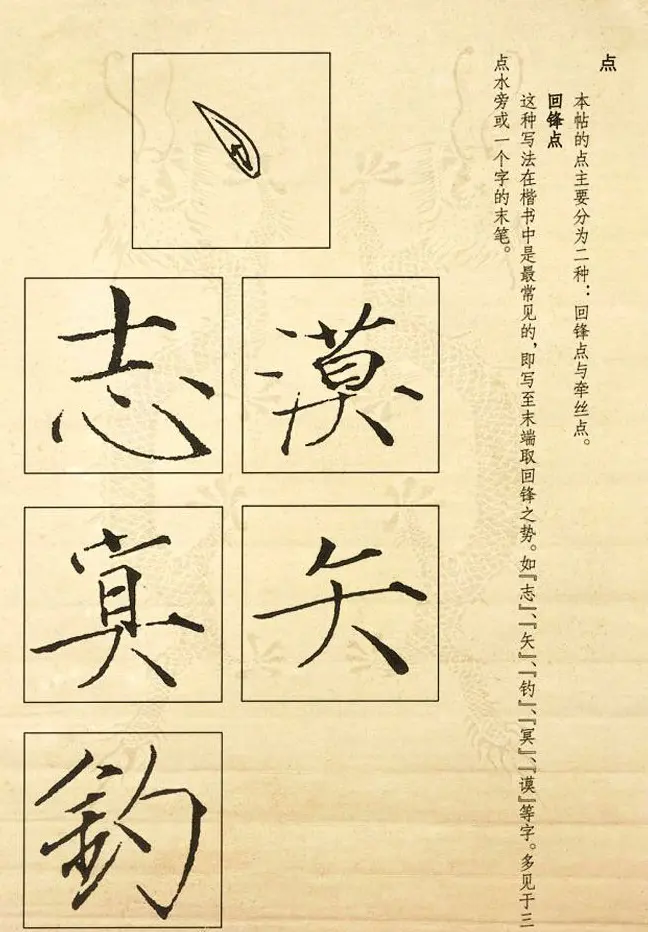 点
本帖的点主要分为二种：回锋点与牵丝点。
回锋点
这种写法在楷书中是最常见的，即写至末端取回锋之势。如『志』、『矢』、『钓』、『冥』、『谟』等字。多见于三
点水旁或一个字的末笔。
漠
矢
志
冥
釣